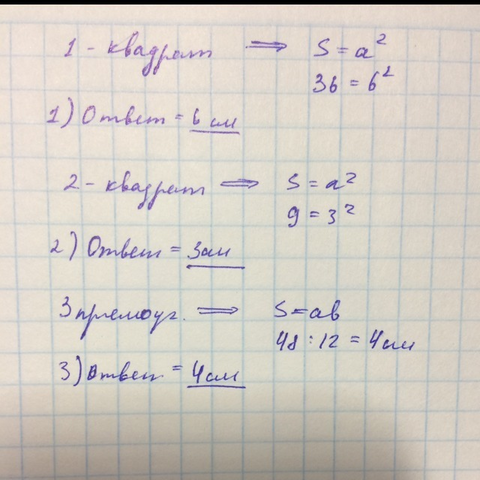 1 - квадрат ⇒ S = a²
36 = 6²
1) Ответ = 6 см
2 - квадрат ⇒ S = a²
9 = 3²
2) Ответ = 3см
3 прямоуг. ⇒ S = ab
48 : 12 = 4см
3) Ответ = 4см